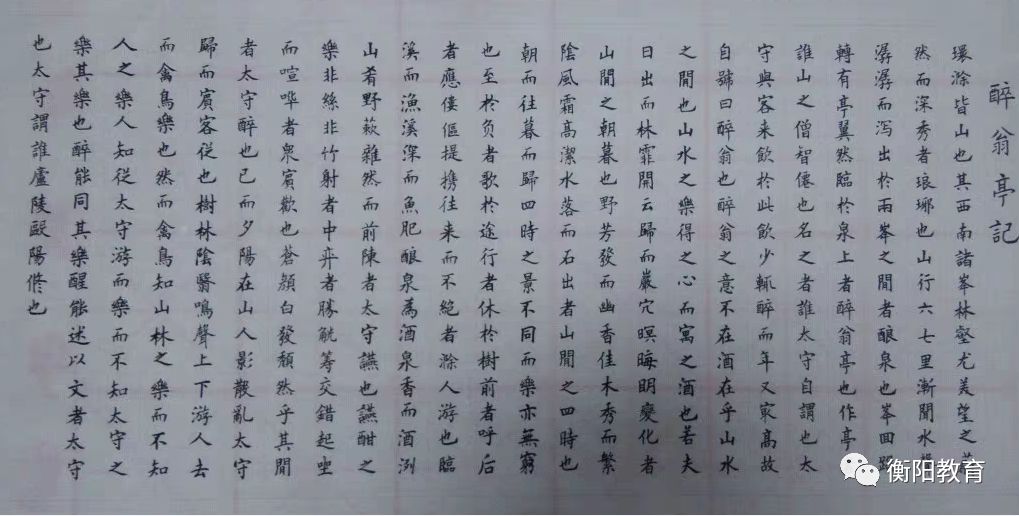 醉翁亭記
環滁皆山也其西南諸峯林壑尤美望之
然而深秀者琅琊也山行六七里漸聞水
潺潺而泻出於兩峯之間者酿泉也峯回路
轉有亭翼然臨於泉上者醉翁亭也作亭
誰山之僧智僊也名之者誰太守自謂也太
守與客来飲於此飲少輒醉而年又㝡髙故
自號曰醉翁也醉翁之意不在酒在乎山水
之間也山水之樂得之心而寓之酒也若夫
日出而林霏開云歸而巖穴暝晦明變化者
山閒之朝暮也野芳發而幽香佳木秀而繁
陰風霜髙潔水落而石出者山閒之四時也
朝而往暮而歸四時之景不同而樂亦無窮
也至於负者歌於途行者休於樹前者呼后
者應僂傴提携往来而不絶者滁人游也臨
溪而漁溪深而魚肥酿泉為酒泉香而酒洌
山肴野蔌雜然而前陳者太守讌也讌酣之
樂非絲非竹射者中弈者勝觥筹交錯起坐
而喧哗者衆賓歡也蒼顔白發頹然乎其閒
者太守醉也已而夕陽在山人影散亂太守
歸而賓客従也樹林陰翳鳴聲上下游人去
而禽鳥樂也然而禽鳥知山林之樂而不知
人之樂人知従太守游而樂而不知太守之
樂其樂也醉能同其樂醒能述以文者太守
也太守謂誰廬陵歐陽脩也
衡阳教育